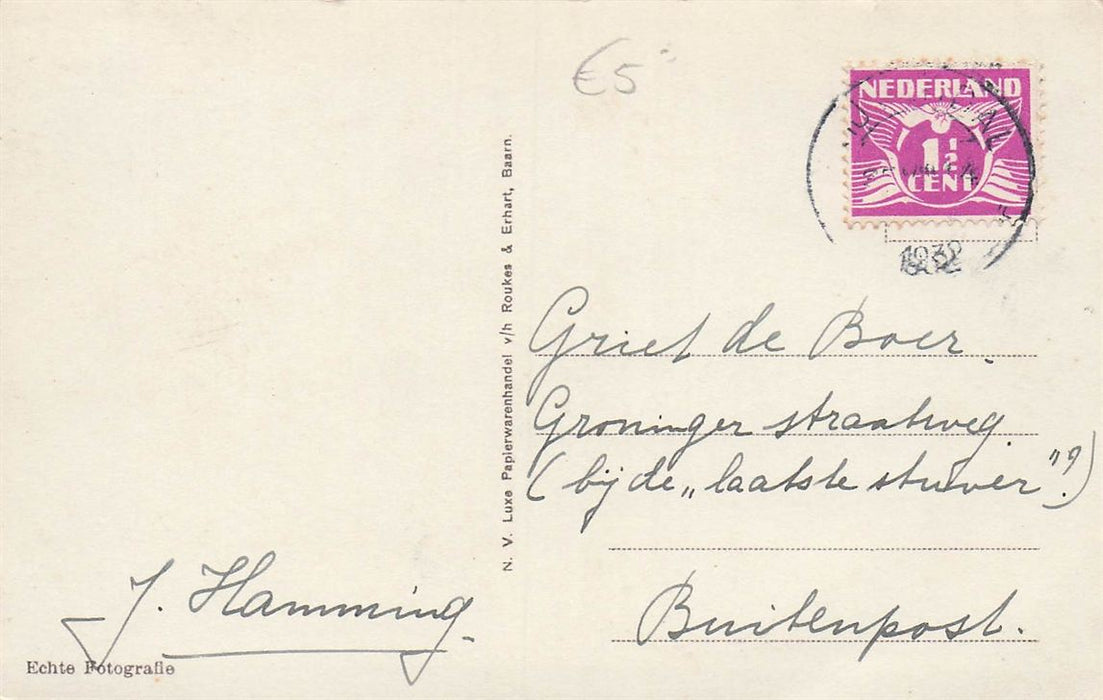 €5
NEDERLAND
1½
CENT
1932
N. V. Luxe Papierwarenhandel v/h Roukes & Erhart, Baarn.
Griet de Boer.
Groninger straatweg
(bij de „laatste stuiver”?)
Buitenpost.
J. Hamming
Echte Fotografie